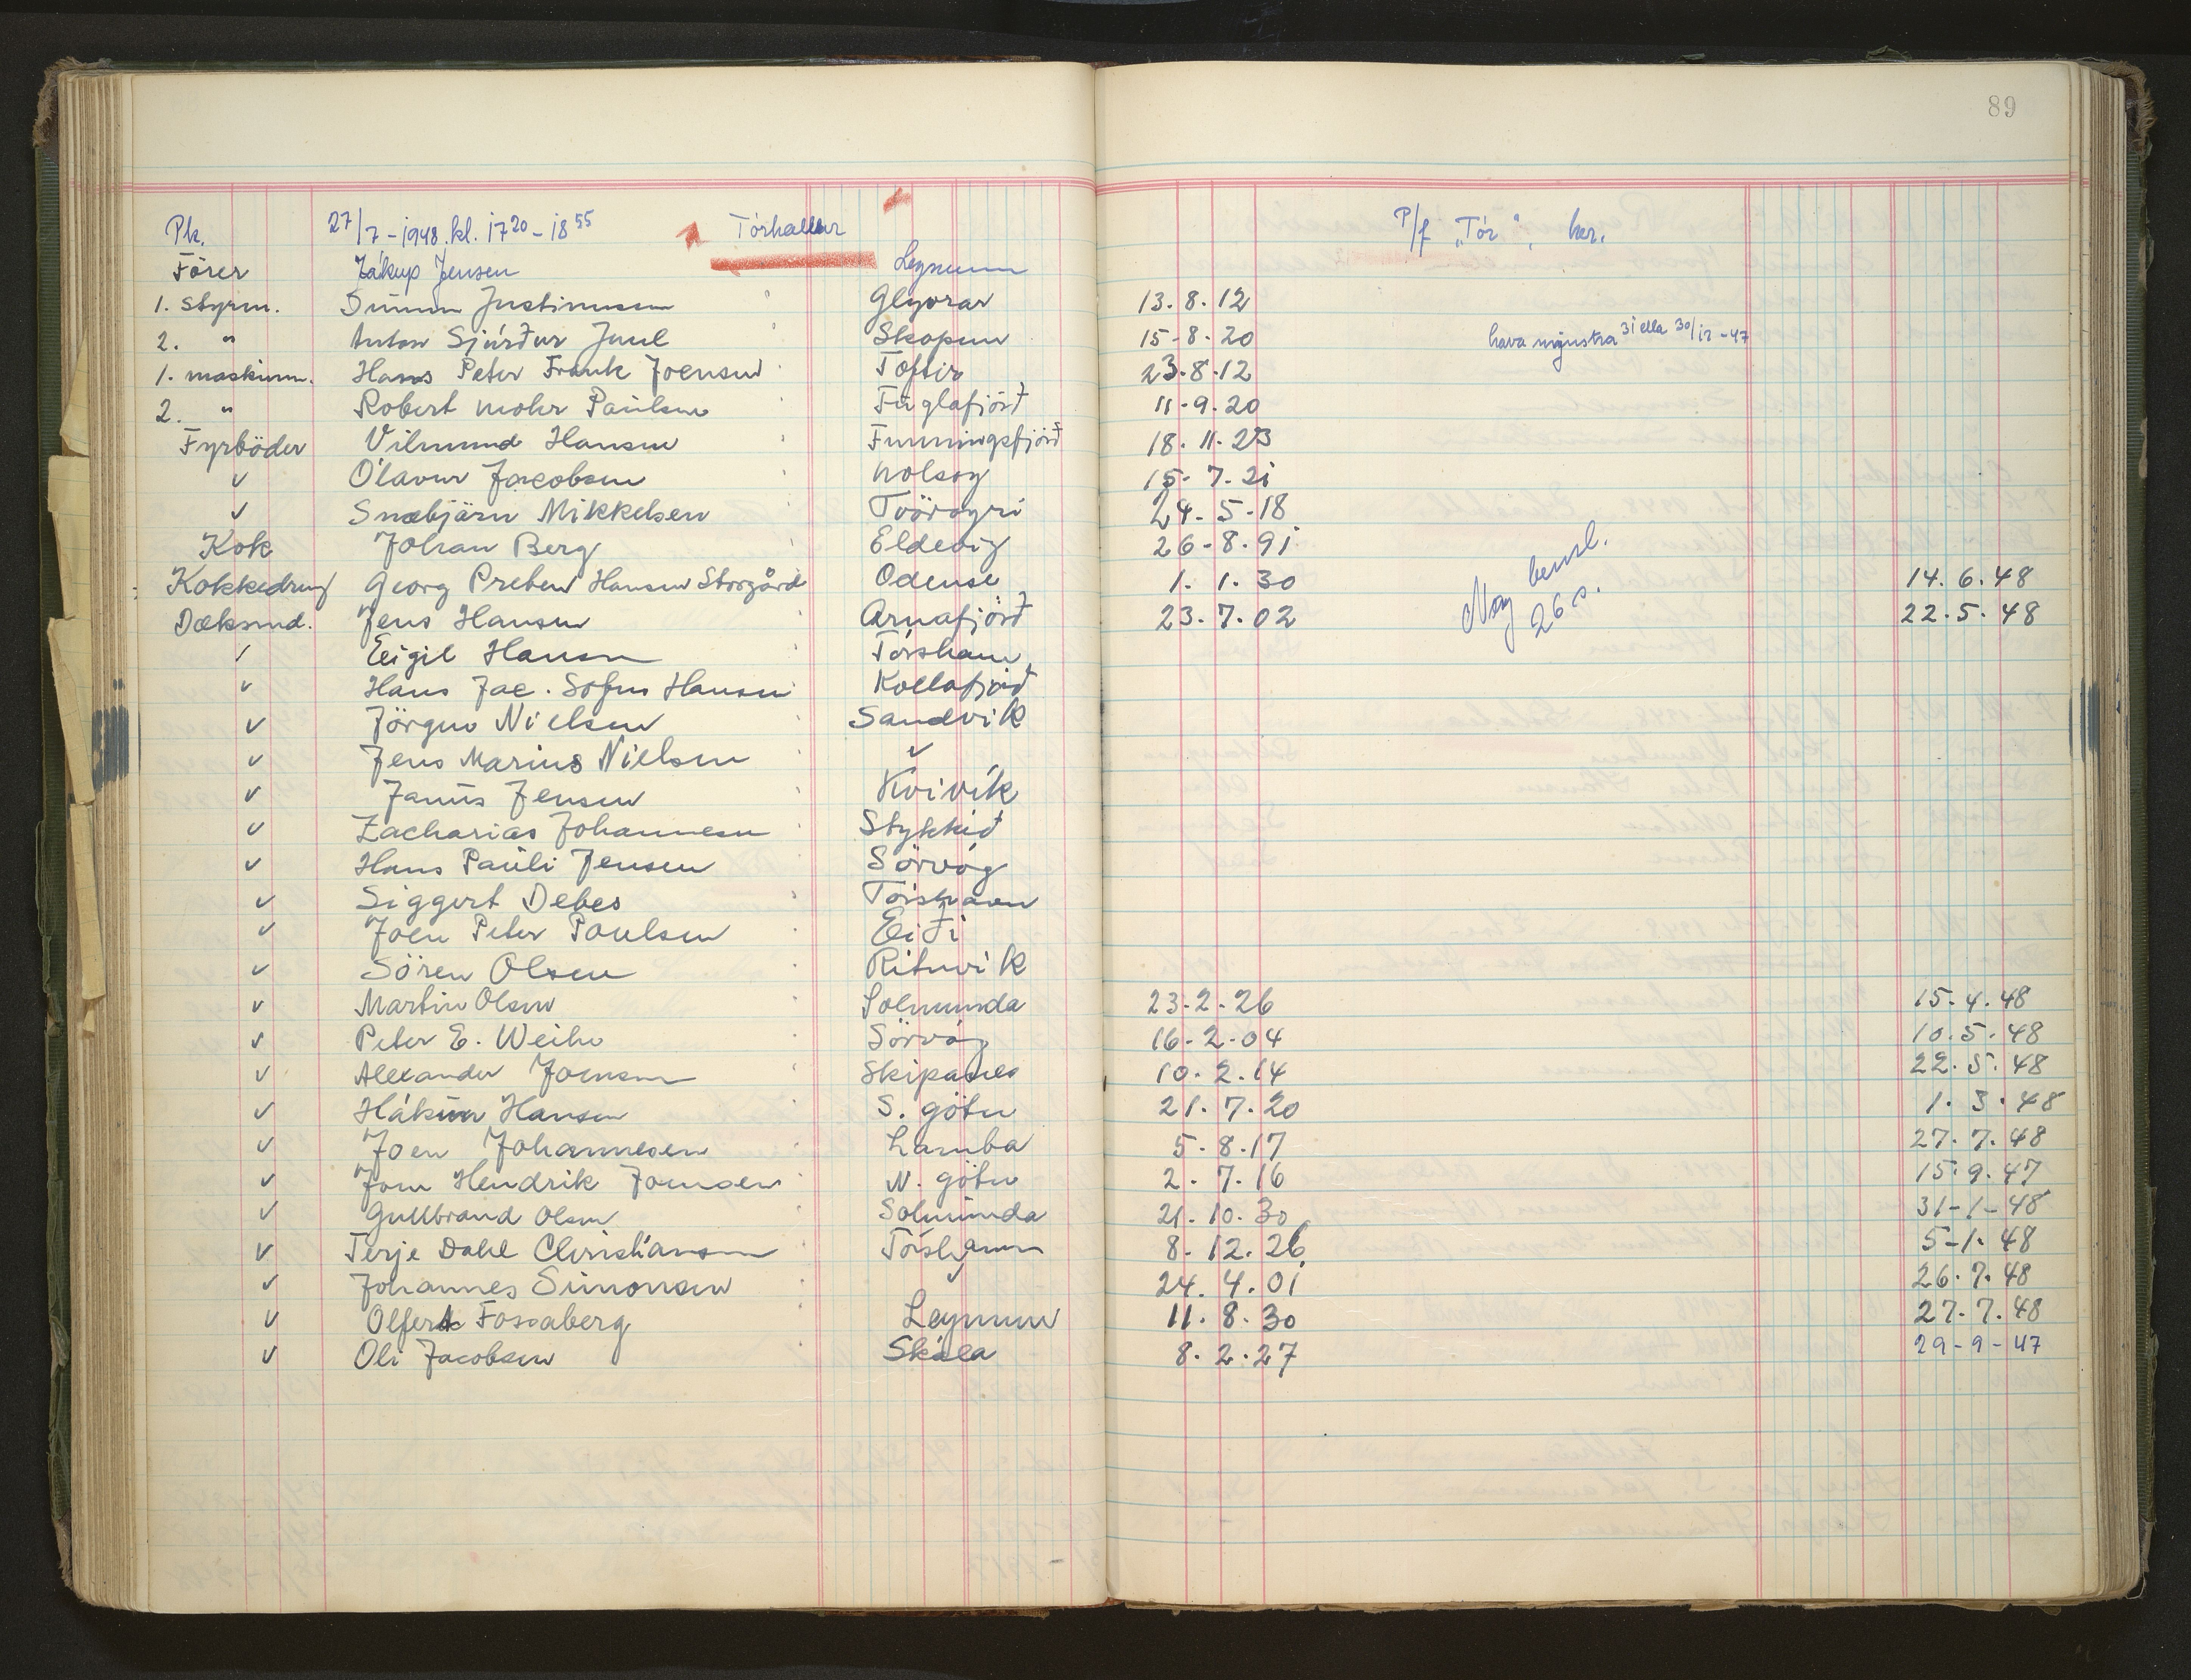 89
Pk. 27/7 - 1948. kl. 17 20 - 18 55 Tórhallur P/f "Tór", her.
Förer Jákup Jensen Leynum
1. styrm. Dúnun Justinussen Glyvrar 13. 8. 12
2. " Anton Sjúrður Juul Skopun 15 - 8. 20 hava mynstra 31 ella 30/12 - 47
1. maskinm. Hans Peter Frank Joensen Toftir 23. 8. 12
2. " Robert Mohr Paulsen Fuglafjörð 11 - 9. 20
Fyrböder Vilmund Hansen Funningsfjörð 18. 11. 23
✓ Ólavur Jacobsen Nolsoy 15. 7. 21
✓ Snæbjörn Mikkelsen Tvöroyri 24. 5 - 18
Kok Johan Berg Eldevig 26 - 8. 91
Kokkedreng Georg Preben Hansen Storgård Odense 1. 1. 30 14. 6. 48
Dæksmd. Jens Hansen Arnafjörð 23. 7. 02 26 22. 5. 48
✓ Eigil Hansen Tórshavn
✓ Hans Jac. Sofus Hansen Kollafjörð
✓ Jörgen Nielsen Sandvik
✓ Jens Marius Nielsen ✓
✓ Janus Jensen Kvivík
✓ Zacharias Johannesen Stykkið
✓ Hans Pauli Jensen Sörvág
✓ Siggert Debes Tórshavn
✓ Joen Peter Poulsen Eiði
✓ Sören Olsen Rituvik
✓ Martin Olsen Solmunda 23. 2 - 26 15. 4. 48
✓ Peter E. Weihe Sörvág 16 - 2 - 04 10. 5. 48
✓ Alexander Joensen Skipanes 10. 2. 14 22. 5. 48
✓ Hákun Hansen S. götu 21. 7. 20 1. 3. 48
✓ Joen Johannesen Lamba 5. 8. 17 27. 7. 48
✓ Joen Hendrik Joensen N. götu 2. 7. 16 15. 9. 47
✓ Gullbrand Olsen Solmunda 21. 10. 30 31 - 1 - 48
✓ Terje Dahl Christiansen Tórshavn 8. 12. 26 5 - 1. 48
✓ Johannes Simonsen ✓ 24. 4. 01 26. 7. 48
✓ Olfert Fossaberg Leynum 11. 8. 30 27. 7. 48
✓ Oli Jacobsen Skála 8. 2. 27 29 - 9 - 47